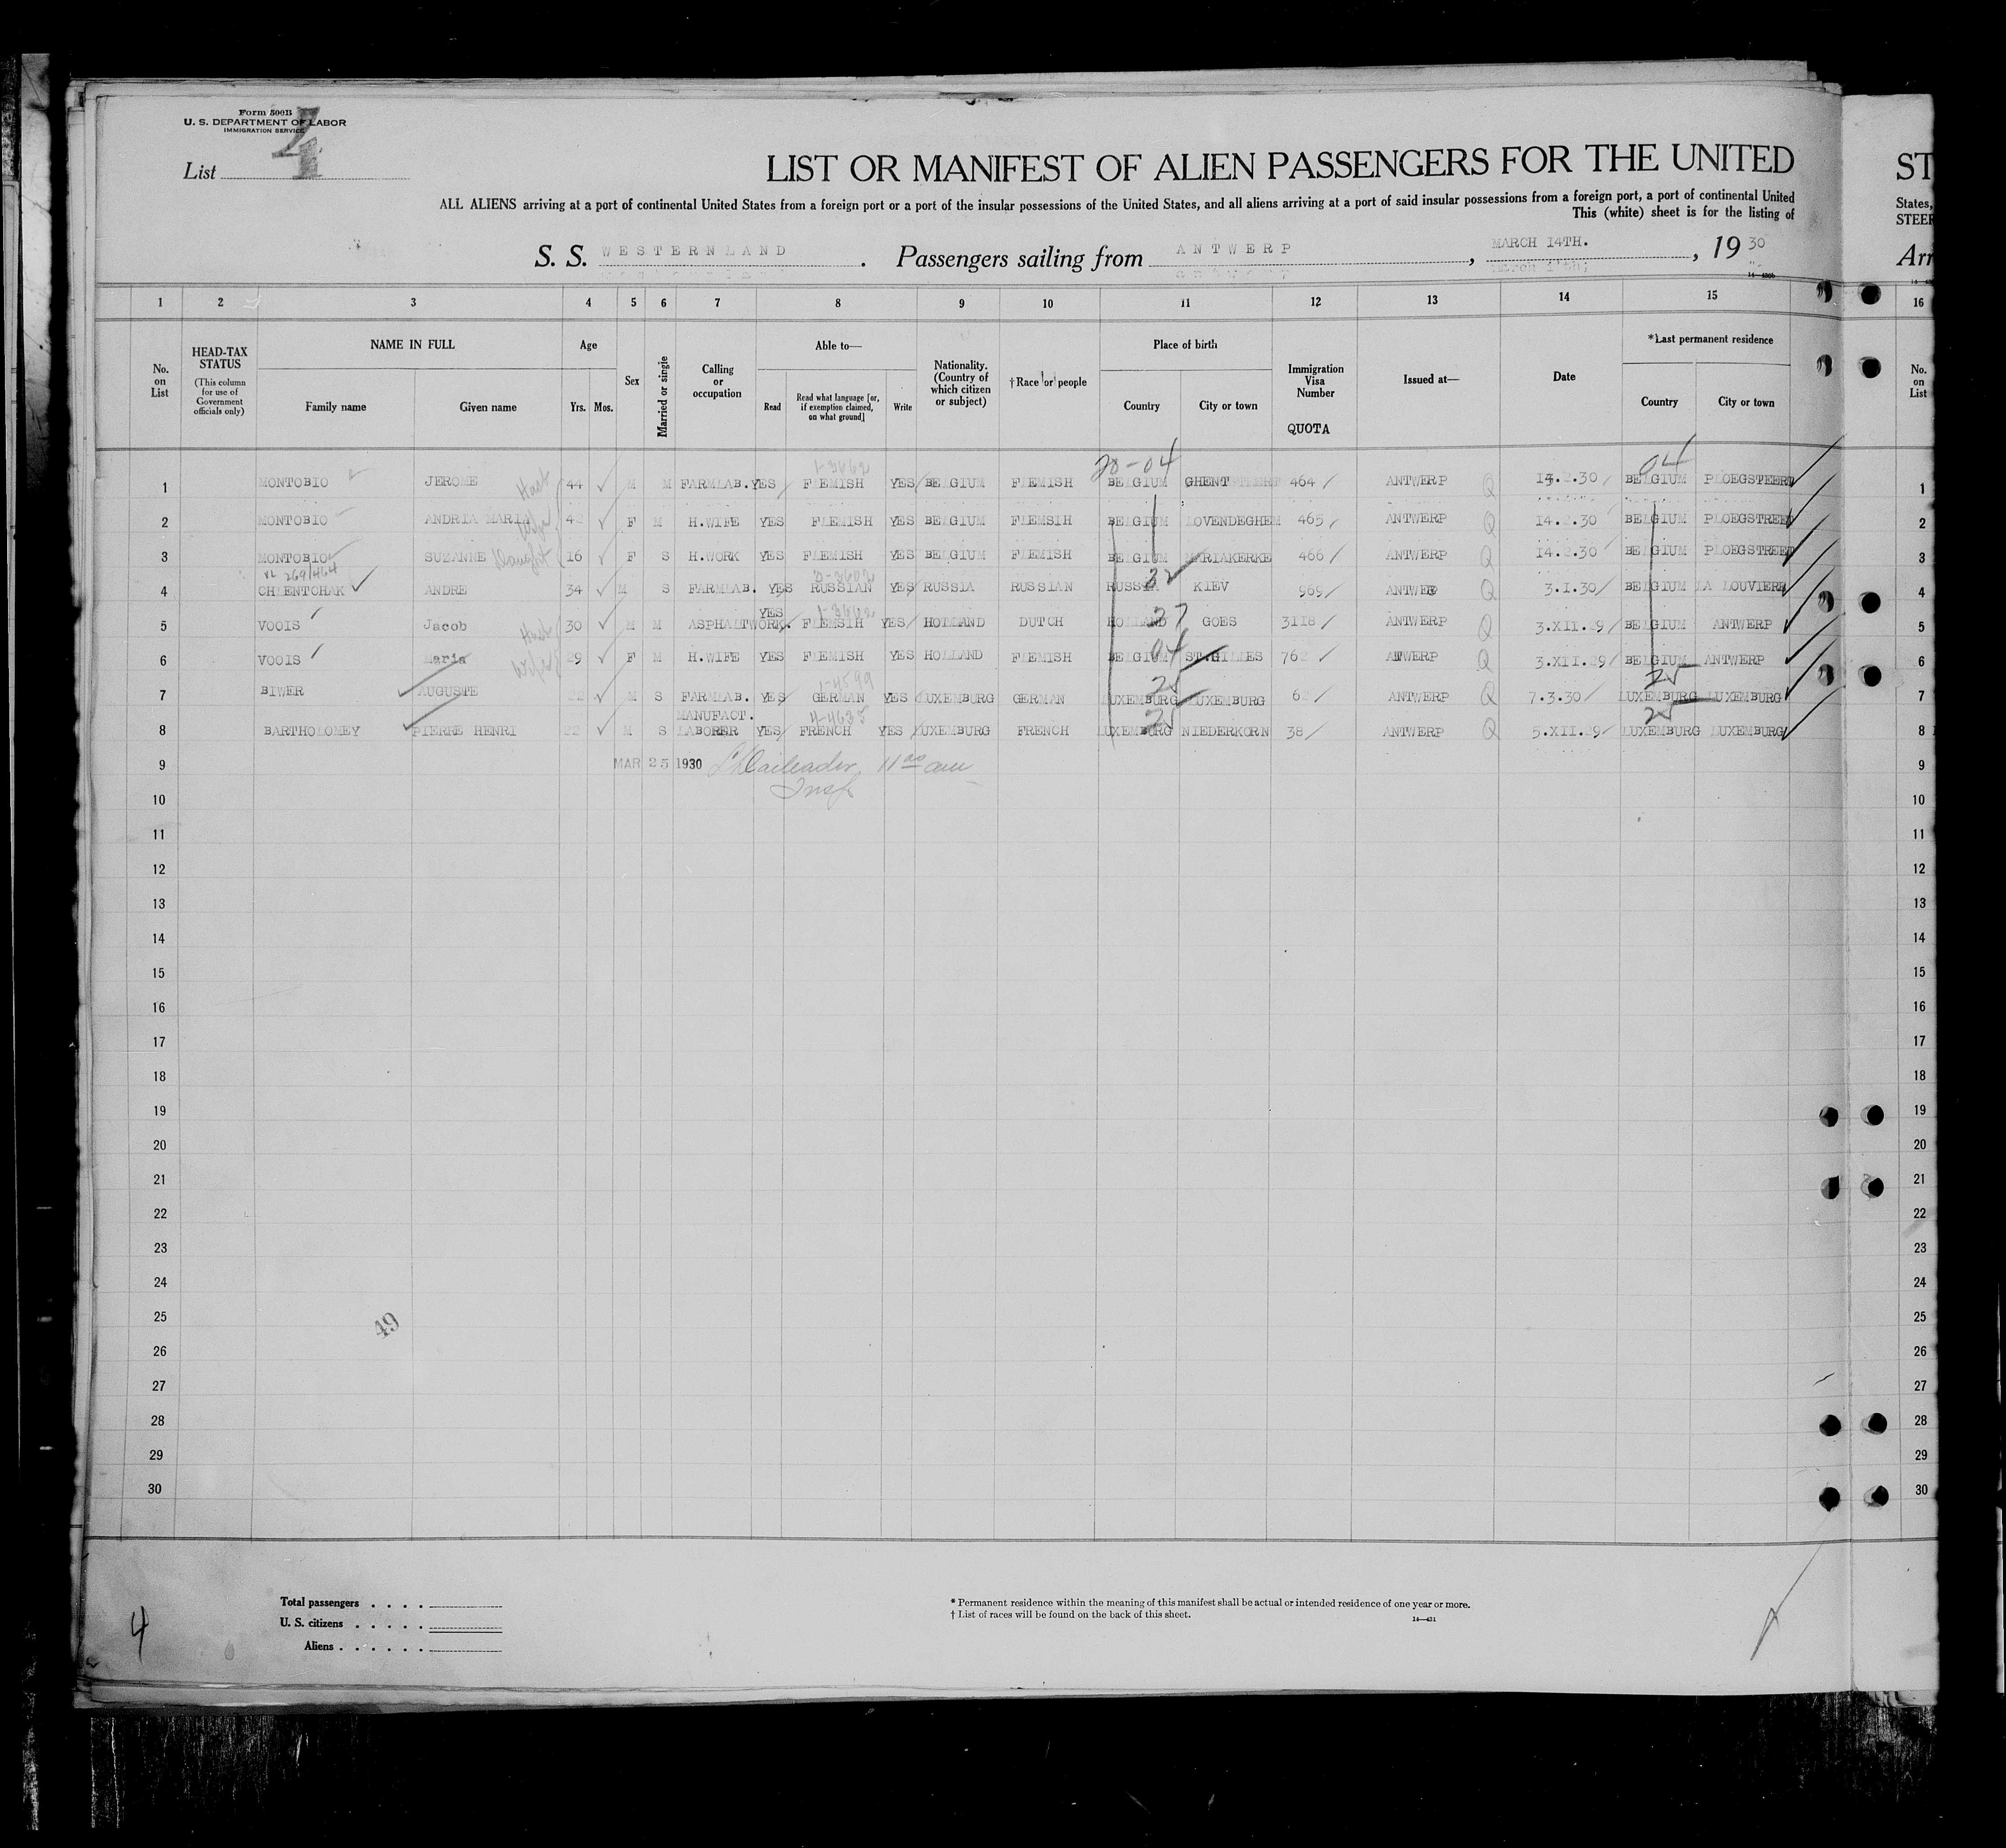 Form 500B
U. S. DEPARTMENT OF LABOR
IMMIGRATION SERVICE
List 4
LIST OR MANIFEST OF ALIEN PASSENGERS FOR THE UNITED
ST
ALL ALIENS arriving at a port of continental United States from a foreign port or a port of the insular possessions of the United States, and all aliens arriving at a port of said insular possessions from a foreign port, a port of continental United
States,
This (white) sheet is for the listing of
STEER
S. S. WESTERNLAND. Passengers sailing from ANTWERP, MARCH 14TH., 1930
Arr
1 2 3 4 5 6 7 8 9 10 11 12 13 14 15 16
No. on List
HEAD-TAX STATUS
(This column for use of Government officials only)
NAME IN FULL
Family name Given name
Age
Yrs. Mos.
Sex
Married or single
Calling or occupation
Able to—
Read
Read what language [or, if exemption claimed, on what ground]
Write
Nationality. (Country of which citizen or subject)
† Race or people
Place of birth
Country City or town
Immigration Visa Number
QUOTA
Issued at—
Date
*Last permanent residence
Country City or town
No. on List
1-3662 20-04 04
1 MONTOBIO JEROME 44 M M FARMLAB. YES FLEMISH YES BELGIUM FLEMISH BELGIUM GHENT 464 ANTWERP Q 14.2.30 BELGIUM PLOEGSTEERT 1
2 MONTOBIO ANDRIA MARIA Wife 42 F M H.WIFE YES FLEMISH YES BELGIUM FLEMSIH BELGIUM LOVENDEGHEM 465 ANTWERP Q 14.2.30 BELGIUM PLOEGSTREET 2
3 MONTOBIO SUZANNE Daught 16 F S H.WORK YES FLEMISH YES BELGIUM FLEMISH BELGIUM MARIAKERKE 466 ANTWERP Q 14.2.30 BELGIUM PLOEGSTREET 3
VL 269/464 32
4 CHLENTCHAK ANDRE 34 M S FARMLAB. YES RUSSIAN YES RUSSIA RUSSIAN RUSSIA KIEV 969 ANTWER Q 3.I.30 BELGIUM LA LOUVIERE 4
1-3662 27
5 VOOIS Jacob 30 M M ASPHALTWORK. YES FLEMSIH YES HOLLAND DUTCH HOLLAND GOES 3118 ANTWERP Q 3.XII.29 BELGIUM ANTWERP 5
04
6 VOOIS Maria Wife 29 F M H.WIFE YES FLEMISH YES HOLLAND FLEMISH BELGIUM ST.GILLES 762 ATWERP Q 3.XII.29 BELGIUM ANTWERP 6
1-4599 25 25
7 BIWER AUGUSTE 22 M S FARMLAB. YES GERMAN YES LUXEMBURG GERMAN LUXEMBURG LUXEMBURG 62 ANTWERP Q 7.3.30 LUXEMBURG LUXEMBURG 7
4-4635 25 25
8 BARTHOLOMEY PIERRE HENRI 22 M S MANUFACT. LABORER YES FRENCH YES LUXEMBURG FRENCH LUXEMBURG NIEDERKORN 38 ANTWERP Q 5.XII.29 LUXEMBURG LUXEMBURG 8
9 MAR 25 1930 11 00 am 9
Insp
10 10
11 11
12 12
13 13
14 14
15 15
16 16
17 17
18 18
19 19
20 20
21 21
22 22
23 23
24 24
25 25
49
26 26
27 27
28 28
29 29
30 30
Total passengers . . . .
U. S. citizens . . . . .
Aliens . . . . . .
4
* Permanent residence within the meaning of this manifest shall be actual or intended residence of one year or more.
† List of races will be found on the back of this sheet.
14—431